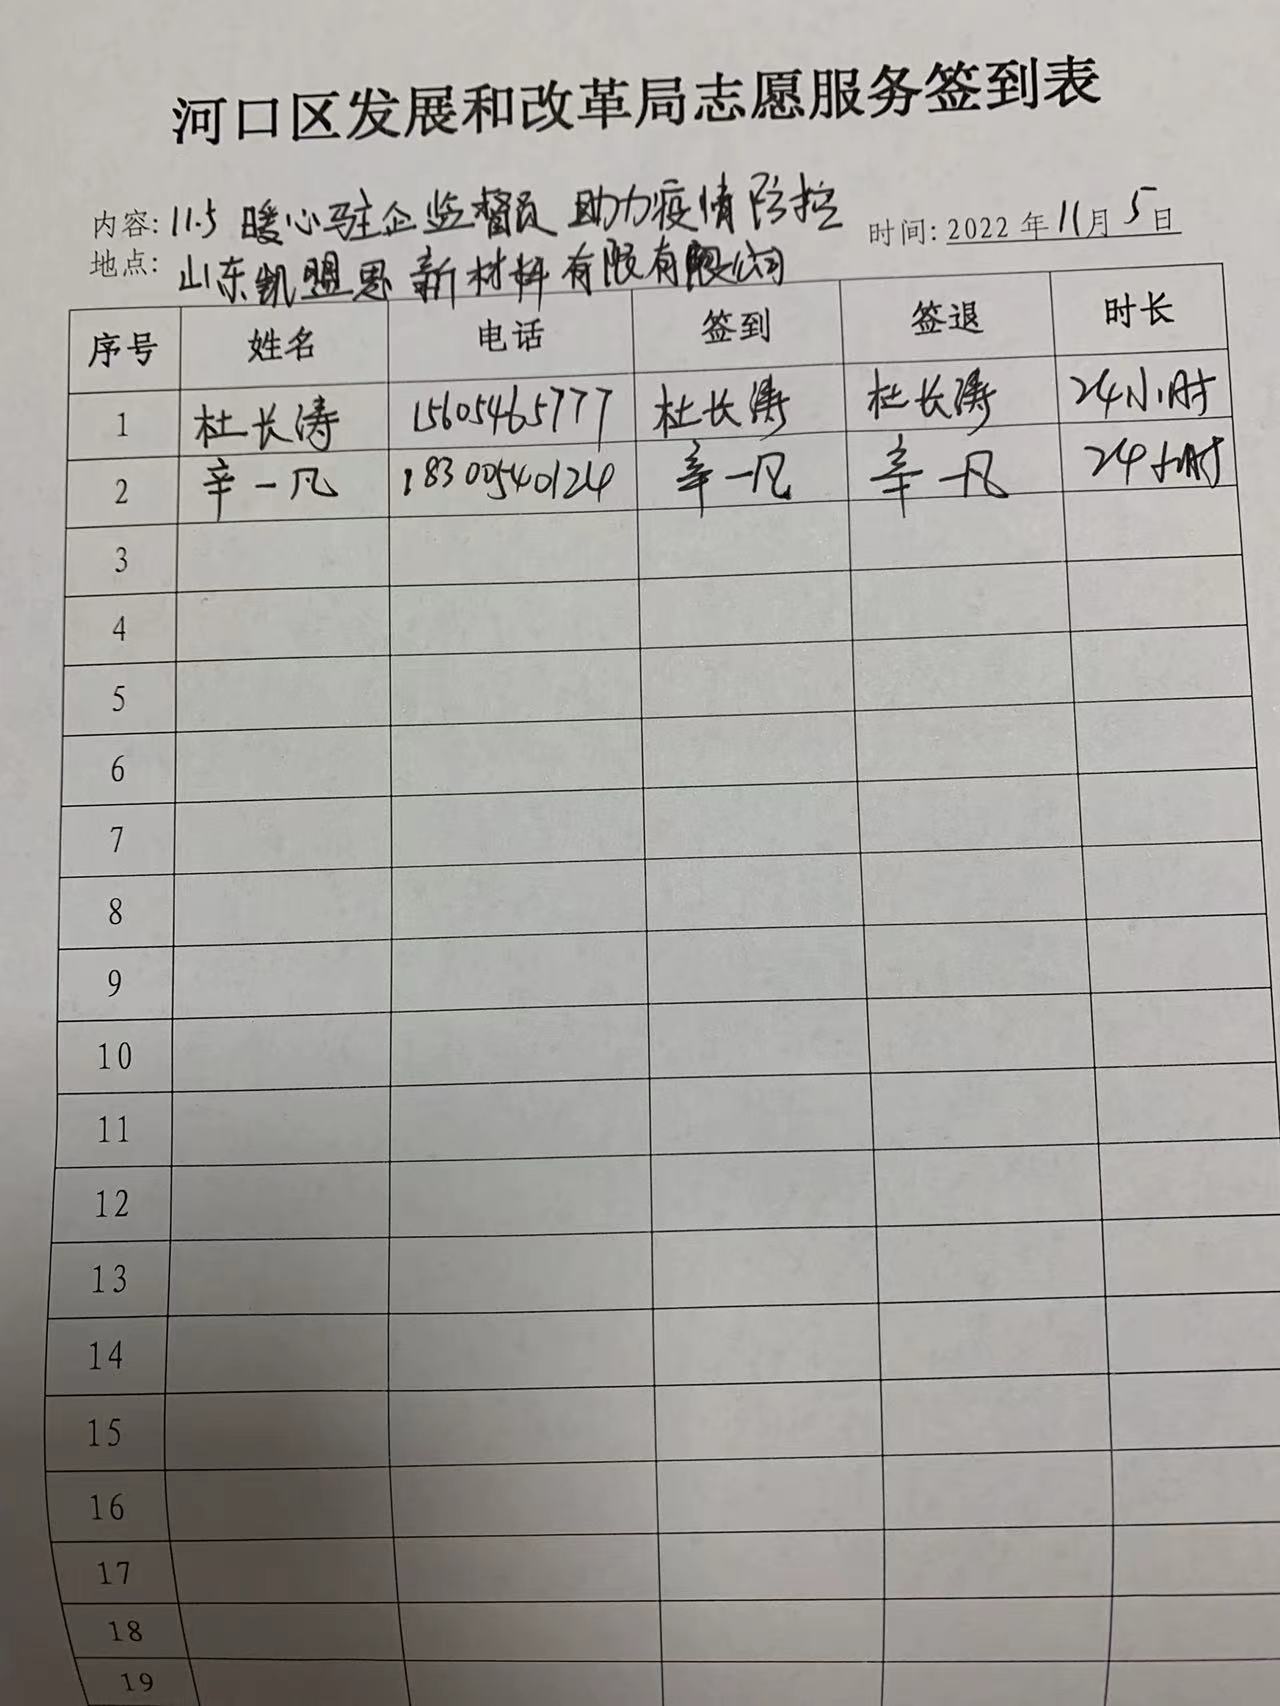 河口区发展和改革局志愿服务签到表
内容: 11.5 暖心驻企监督员 助力疫情防控 时间: 2022 年 11 月 5 日
地点: 山东凯盟思新材料有限有限公司
序号 姓名 电话 签到 签退 时长
1 杜长涛 15605465777 杜长涛 杜长涛 24小时
2 辛一凡 18300540124 辛一凡 辛一凡 24小时
3
4
5
6
7
8
9
10
11
12
13
14
15
16
17
18
19